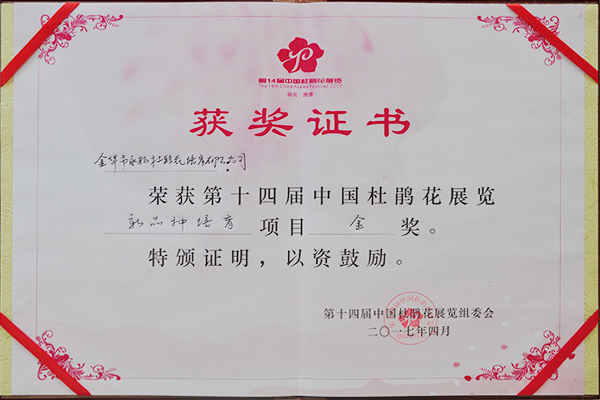 第14届中国杜鹃花展览
The 14th China Azalea Festival 2017
获奖证书
金华市永根杜鹃花培育有限公司
荣获第十四届中国杜鹃花展览
新品种培育 项目 金 奖。
特颁证明，以资鼓励。
第十四届中国杜鹃花展览组委会
二〇一七年四月